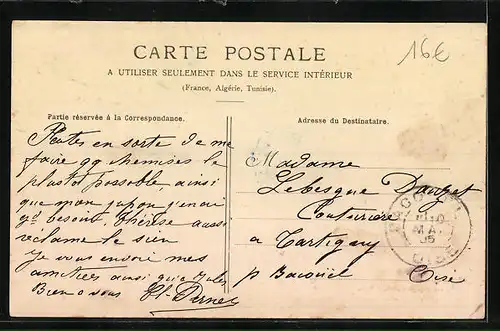 CARTE POSTALE
A UTILISER SEULEMENT DANS LE SERVICE INTÉRIEUR
(France, Algérie, Tunisie).
16€
Partie réservée à la Correspondance.
Faites en sorte de me
faire qq chemises le
plustot possoble, ainsi
que mon jupon j'en ai
gd besoin, Thérèse aussi
réclame le sien
Je vous envoi mes
amitiées ainsi qu'a Jules
Bien a vous
Adresse du Destinataire.
Madame
Lebesque
Couturière
a Tartigny
p Bacouël
Oise
MAI
05
OISE